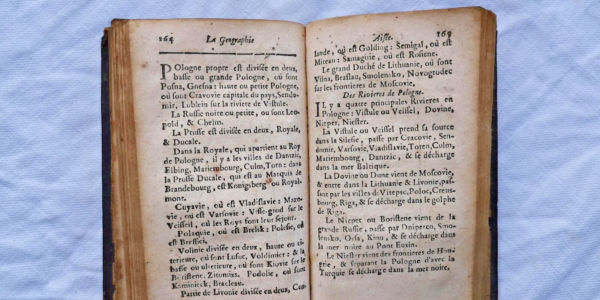 164 La Geographie
POlogne propre est divisée en deux,
basse ou grande Pologne, où sont
Posna, Gnesna: haute ou petite Pologne,
où sont Cravovie capitale du pays, Sendo-
mir, Lublein sur la riviere de Vistule.
La Russie noire ou petite, ou sont Leo-
pold, & Chelm.
La Prusse est divisée en deux, Royale,
& Ducale.
Dans la Royale, qui appartient au Roy
de Pologne, il y a les villes de Dantzic,
Elbing, Mariembourg, Culm, Torn: dans
la Prusse Ducale, qui est au Marquis de
Brandebourg, est Konigsberg ou Royal-
mont.
Cujavie, où est Vladislavie: Mazo-
vie, où est Varsovie: Visse-grod sur le
Veissel, où les Roys sont leur sejour.
Polaquie, où est Breslk: Polesie, où
est Bressici.
Volinie divisée en deux, haute ou ci-
terieure, où sont Lusuc, Voldimier: &
basse ou ulterieure, où sont Kiovie sur le
Boristene, Zitomirs. Podolie, où sont
Kaminieck, Braclau.
Partie de Livonie divisée en deux, Cur-
Asiste. 169
lande, où est Golding: Semigal, où est
Miteau: Samagitie, où est Rosiene.
Le grand Duché de Lithuanie, où sont
Vilna, Braslau, Smolensko, Novogrodec
sur les frontieres de Moscovie.
Des Rivieres de Pologne.
IL y a quatre principales Rivieres en
Pologne: Vistule ou Veissel, Dovine,
Nieper, Niester.
La Vistule ou Veissel prend sa source
dans la Silesie, passe par Cracovie, Sen-
domir, Varsovie, Vladislavie, Toren, Culm,
Mariembourg, Dantzic, & se décharge
dans la mer Baltique.
La Dovine ou Dune vient de Moscovie,
& entre dans la Lithuanie & Livonie, pas-
sant par les villes de Vitepsc, Poloc, Creus-
bourg, Riga, & se décharge dans le golphe
de Riga.
Le Nieper ou Boristene vient de la
grande Russie, passe par Dnipersco, Smo-
lensko, Orsa, Kiau, & se décharge dans la
mer noire au Pont Euxin.
Le Niester vient des frontieres de Hon-
grie, & separant la Pologne d'avec la
Turquie se décharge dans la mer noire.